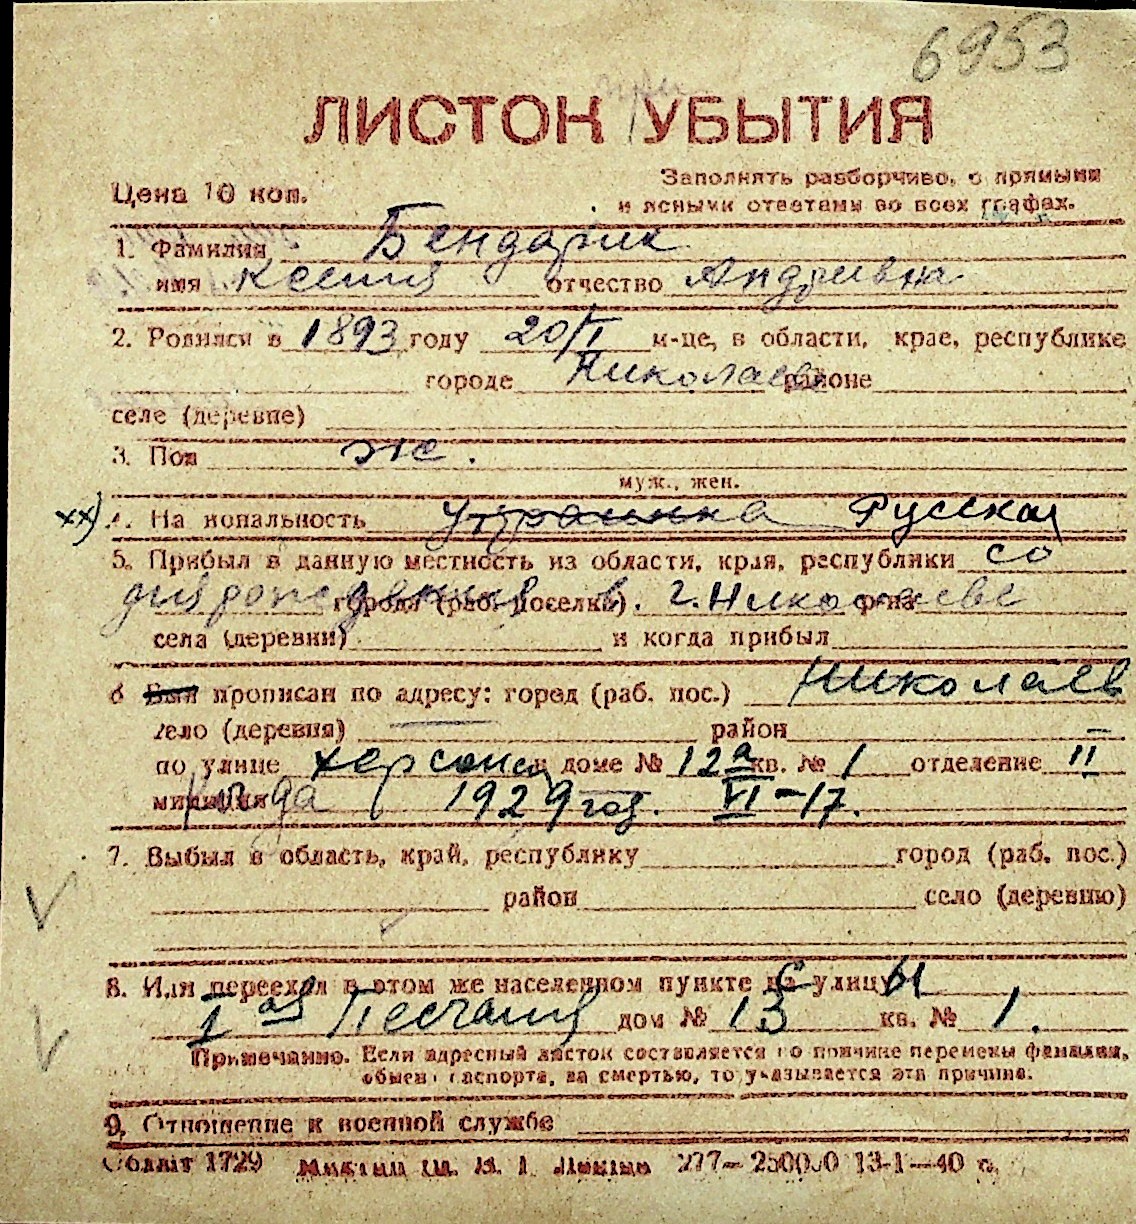 6953
ЛИСТОК УБЫТИЯ
Цена 10 коп.
Заполнять разборчиво, с прямыми
и ясными ответами во всех графах.
1. Фамилия Бендарик
имя Ксения отчество Андреевна
2. Родился в 1893 году 20/I м-це, в области, крае, республике
городе Николаев районе
селе (деревне)
3. Пол ж.
муж., жен.
xx) 4. Национальность Украинка Русская
5. Прибыл в данную местность из области, края, республики со
дня рождения в г. Николаеве
города (раб. поселка) р-на
села (деревни) и когда прибыл
6 Был прописан по адресу: город (раб. пос.) Николаев
село (деревня) район —
по улице Херсонск доме № 12а кв. № 1 отделение II
милиции 1929 год. VI-17.
7. Выбыл в область, край, республику город (раб. пос.)
район село (деревню)
8. Или переехал в этом же населенном пункте на с улицу ы
I ая Песчания дом № 13 кв. № 1.
Примечание. Если адресный листок составляется по причине перемены фамилии,
обмена паспорта, за смертью, то указывается эта причина.
9. Отношение к военной службе
Обллит 1729 277— 250000 13-1—40 г.